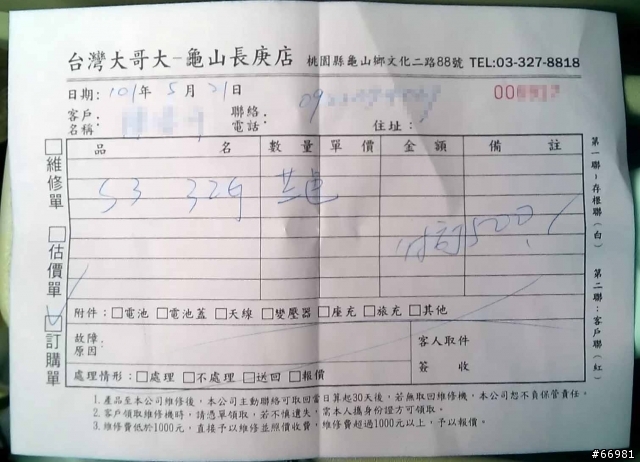 台灣大哥大-龜山長庚店 桃園縣龜山鄉文化二路88號 TEL:03-327-8818
日期: 101年 5月21日 00
客戶名稱: 聯絡電話: 09 住址:
維修單
估價單
訂購單
品 名 數量 單價 金額 備註
S3 32G 藍色
付訂500
附件: □電池 □電池蓋 □天線 □變壓器 □座充 □旅充 □其他
故障原因: 客人取件簽收
處理情形: □處理 □不處理 □送回 □報價
第一聯-存根聯(白) 第二聯:客戶聯(紅)
1.產品至本公司維修後,本公司主動聯絡可取回當日算起30天後,若無取回維修機,本公司恕不負保管責任。
2.客戶領取維修機時,請憑單領取,若不慎遺失,需本人攜身份證方可領取。
3.維修費低於1000元,直接予以維修並照價收費,維修費超過1000元以上,予以報價。
#66981